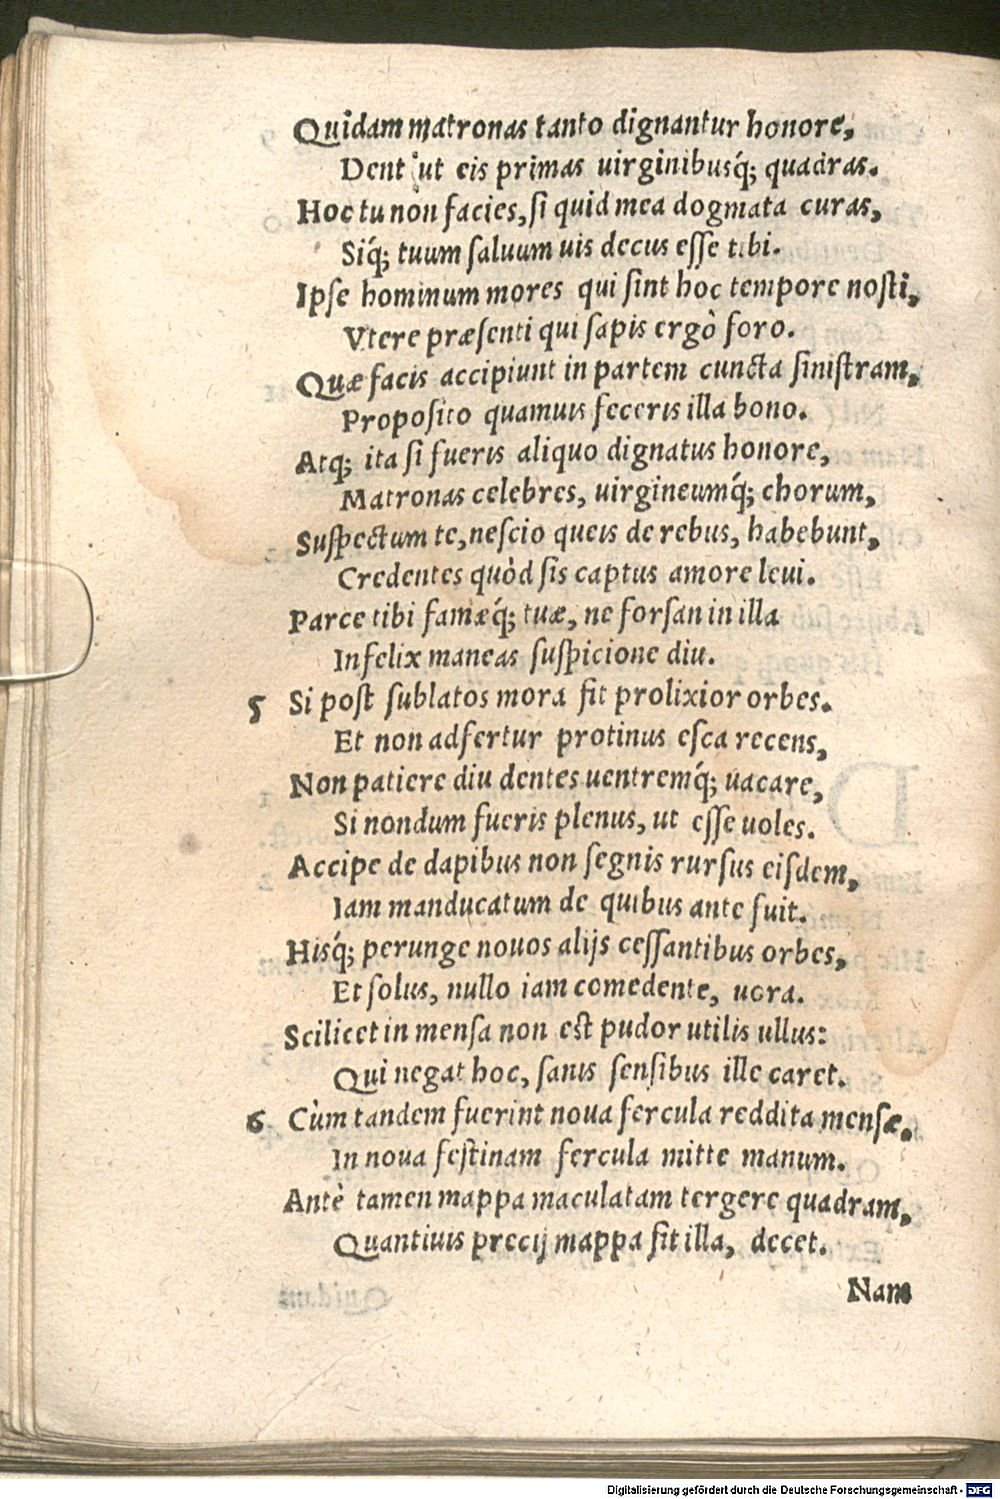 Quidam matronas tanto dignantur honore,
Dent ut eis primas uirginibusq́; quadras.
Hoc tu non facies, si quid mea dogmata curas,
Siq́; tuum saluum uis decus esse tibi.
Ipse hominum mores qui sint hoc tempore nosti,
Vtere præsenti qui sapis ergò foro.
Quæ facis accipiunt in partem cuncta sinistram,
Proposito quamuis feceris illa bono.
Atq; ita si fueris aliquo dignatus honore,
Matronas celebres, uirgineumq́; chorum,
Suspectum te, nescio queis de rebus, habebunt,
Credentes quòd sis captus amore leui.
Parce tibi famæq́; tuæ, ne forsan in illa
Infelix maneas suspicione diu.
5 Si post sublatos mora fit prolixior orbes.
Et non adfertur protinus esca recens,
Non patiere diu dentes uentremq́; uacare,
Si nondum fueris plenus, ut esse uoles.
Accipe de dapibus non segnis rursus eisdem,
Iam manducatum de quibus ante fuit.
Hisq́; perunge nouos alijs cessantibus orbes,
Et solus, nullo iam comedente, uora.
Scilicet in mensa non est pudor utilis ullus:
Qui negat hoc, sanis sensibus ille caret.
6 Cùm tandem fuerint noua fercula reddita mensæ,
In noua festinam fercula mitte manum.
Antè tamen mappa maculatam tergere quadram,
Quantiuis precij mappa sit illa, decet.
Nam
Digitalisierung gefördert durch die Deutsche Forschungsgemeinschaft - DFG